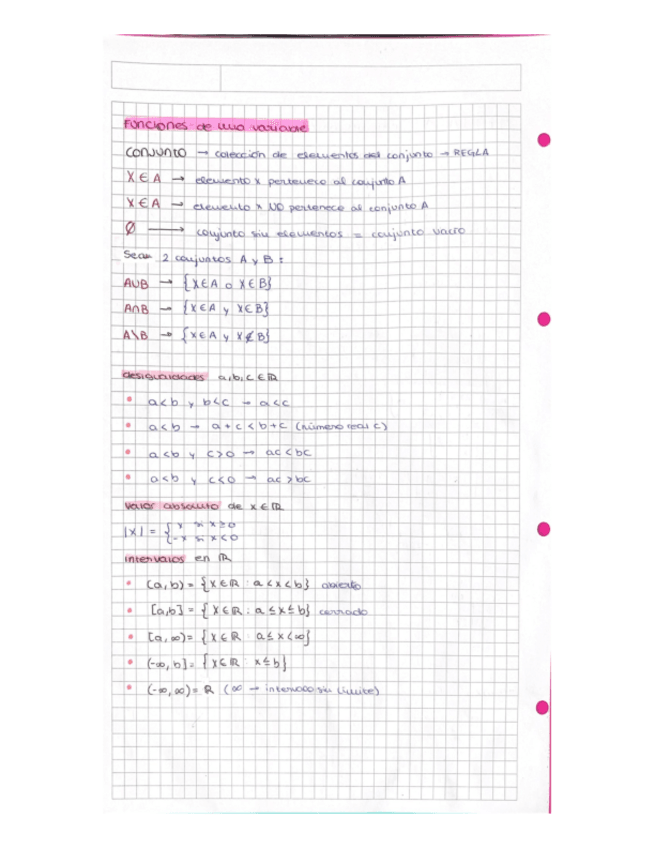 Funciones de una variable
CONJUNTO → colección de elementos del conjunto → REGLA
X ∈ A → elemento x pertenece al conjunto A
X ∈ A → elemento x NO pertenece al conjunto A
∅ → conjunto sin elementos = conjunto vacío
Sean 2 conjuntos A y B:
A∪B → {X∈A o X∈B}
A∩B → {X∈A y X∈B}
A\B → {X∈A y X∉B}
desigualdades a,b,c ∈ ℝ
• a<b y b<c → a<c
• a<b → a+c<b+c (número real c)
• a<b y c>0 → ac<bc
• a<b y c<0 → ac>bc
valor absoluto de x∈ℝ
|x| = { x si x≥0
{ -x si x<0
intervalos en ℝ
• (a,b) = {X∈ℝ : a<x<b} abierto
• [a,b] = {X∈ℝ : a≤x≤b} cerrado
• [a,∞) = {X∈ℝ : a≤x<∞}
• (-∞,b] = {X∈ℝ : x≤b}
• (-∞,∞) = ℝ (∞ → intervalo sin límite)